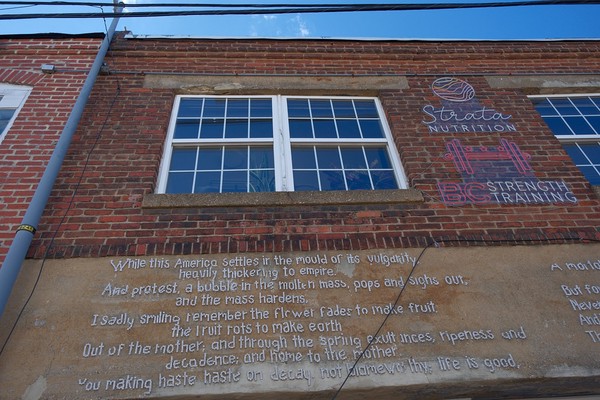 Strata
NUTRITION
BG STRENGTH
TRAINING
While this America settles in the mould of its vulgarity,
heavily thickening to empire.
And protest, a bubble in the molten mass, pops and sighs out,
and the mass hardens,
I sadly smiling remember the flower fades to make fruit,
the fruit rots to make earth
Out of the mother; and through the spring exultances, ripeness and
decadence; and home to the mother.
You making haste haste on decay, not blamewrthy; life is good,
A mortal
But for
Never
And